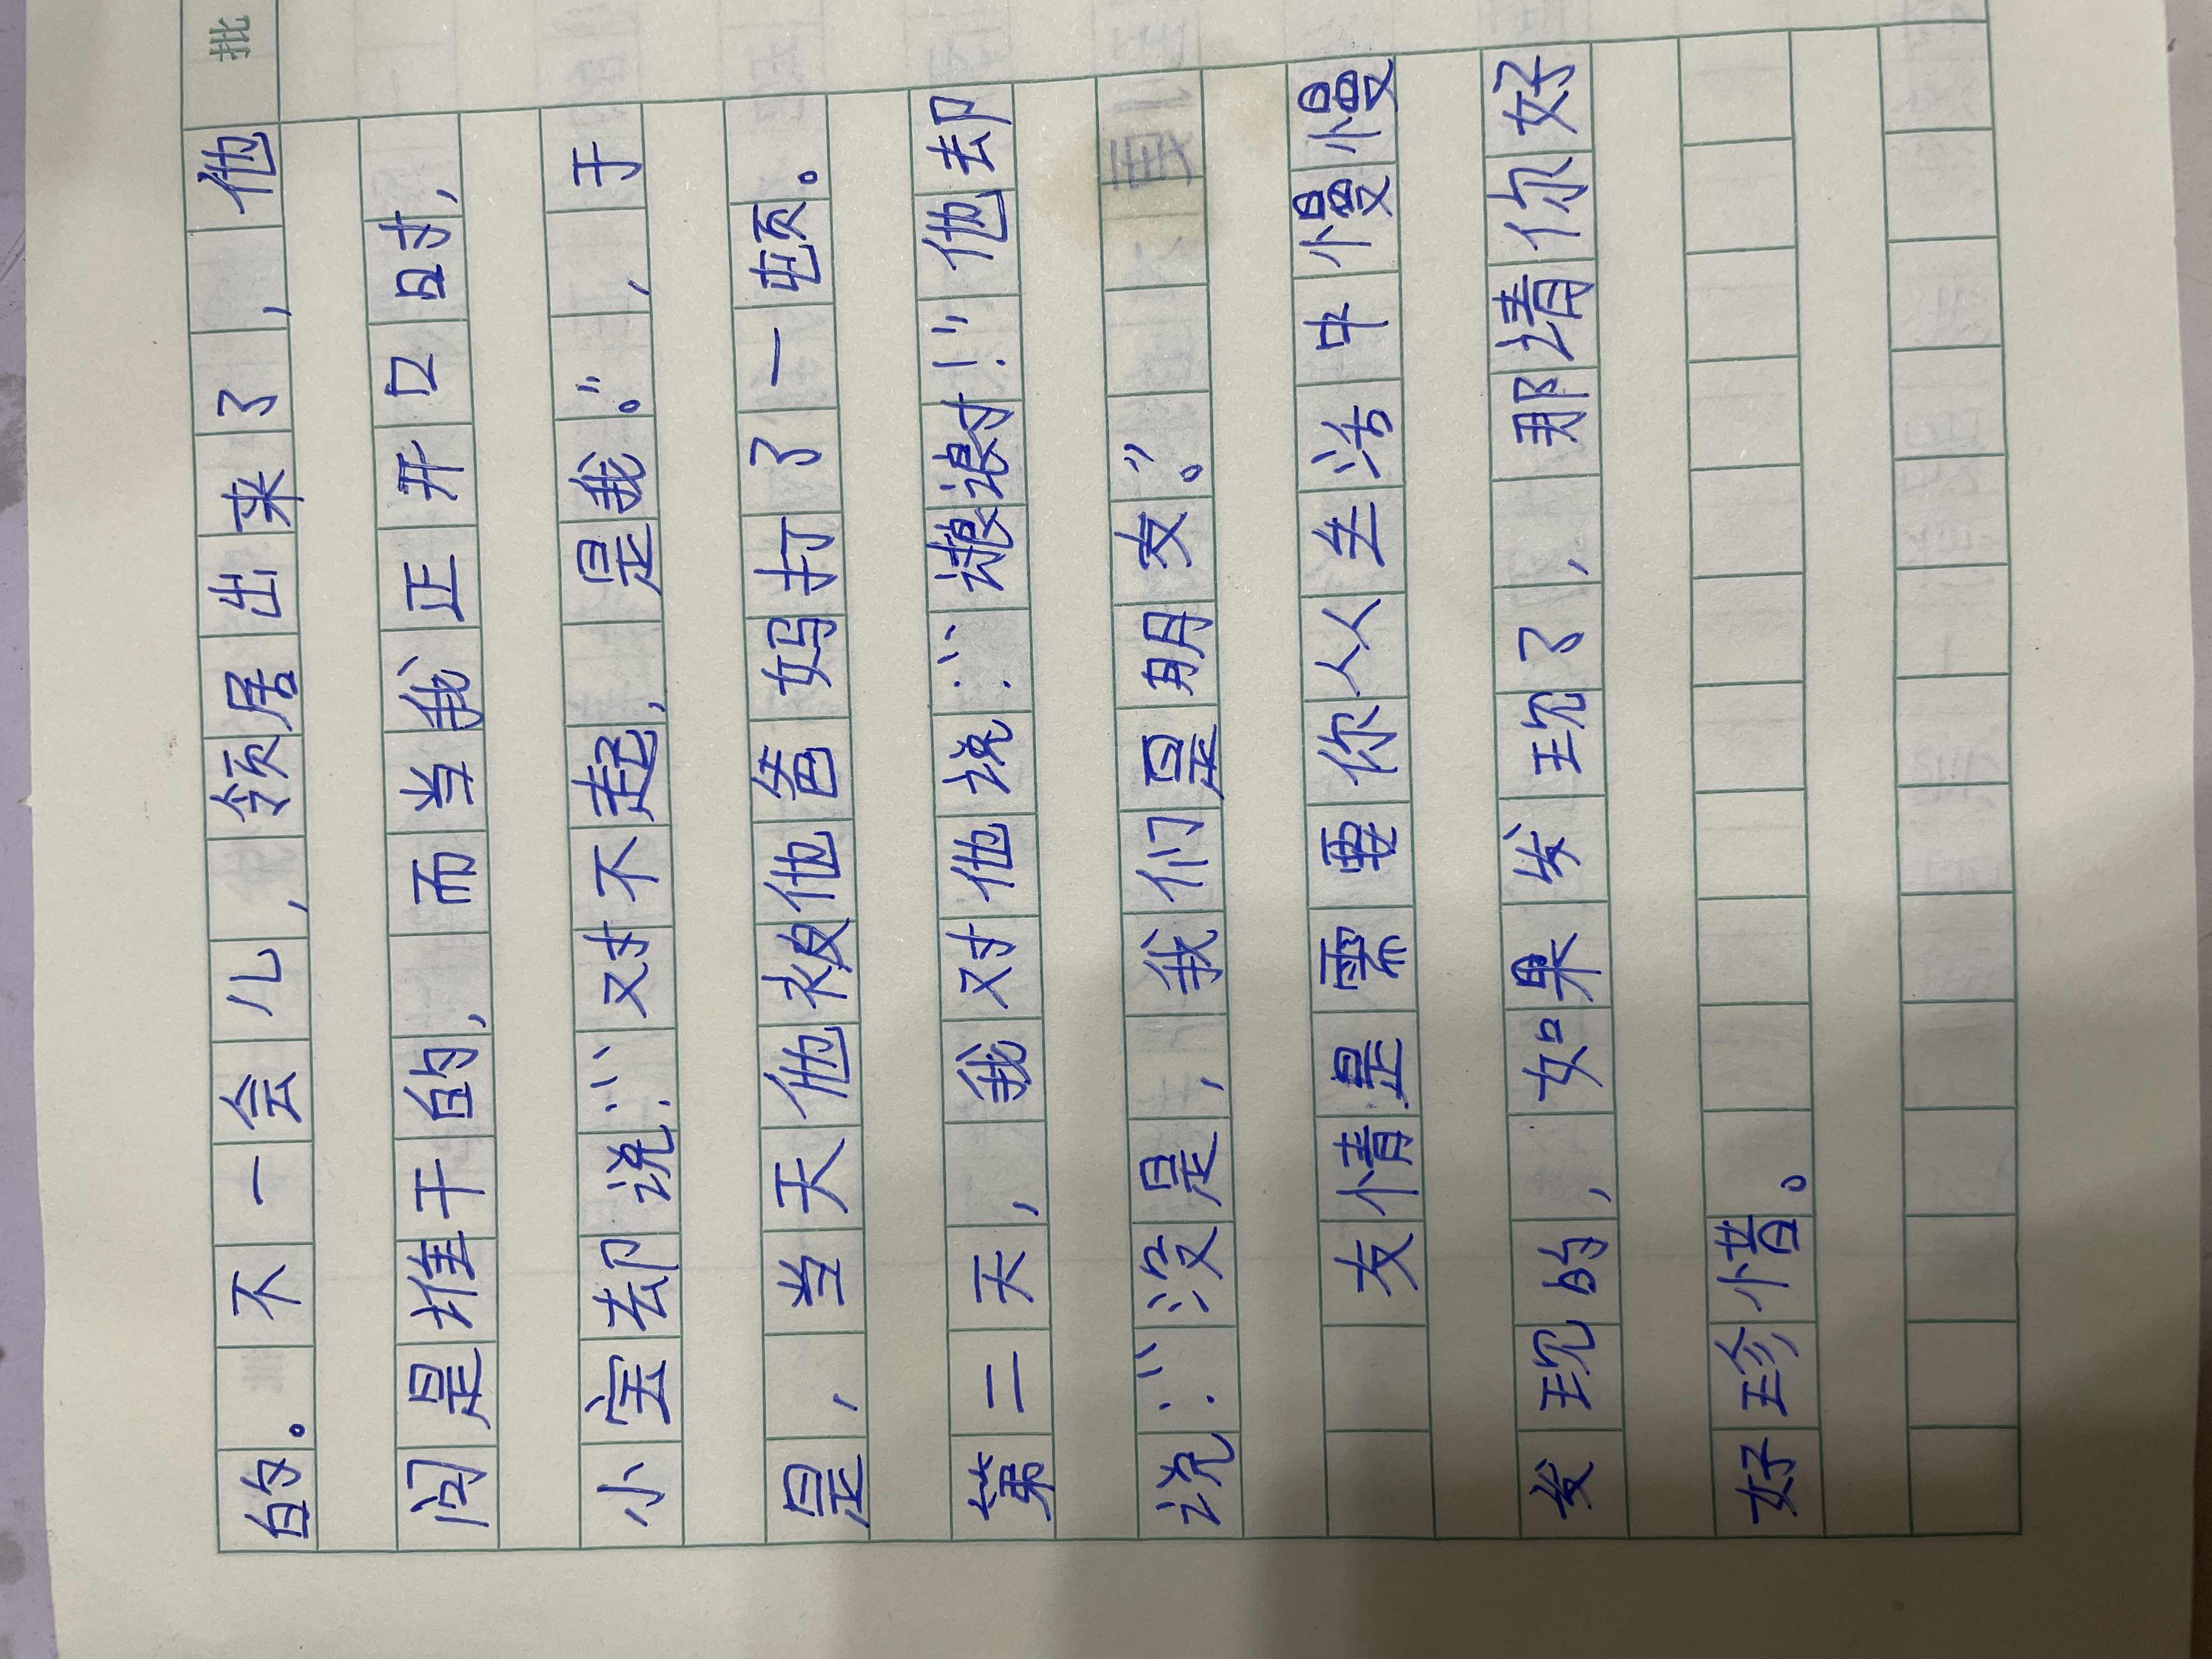 的。不一会儿，领居出来了，他 批
问是谁干的，而当我正开口时，
小宝却说：“对不起，是我。”，于
是，当天他被他爸妈打了一顿。
第二天，我对他说：“谢谢！”他却
说：“没是，我们是朋友。”
友情是需要你从生活中慢慢
发现的，如果发现了，那请你好
好珍惜。